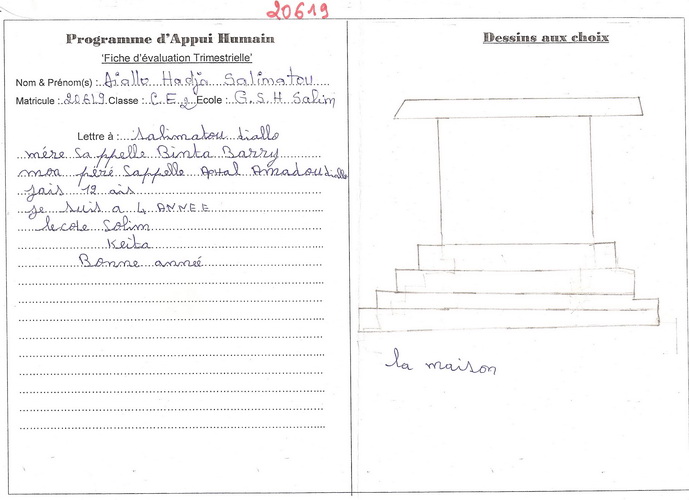 20619
Programme d'Appui Humain
'Fiche d'évaluation Trimestrielle'
Nom & Prénom(s) : Diallo Hadja Salimatou
Matricule : 20619 Classe : C.E 2 Ecole : G.S.H Salim
Lettre à : Salimatou diallo
mére Sappelle Binta Barry
mon péré Sappelle Amadou diallo
jais 12 ais
je suis a 4 ANNEE
lecole Solim
Keita
Bonne année
Dessins aux choix
la maison